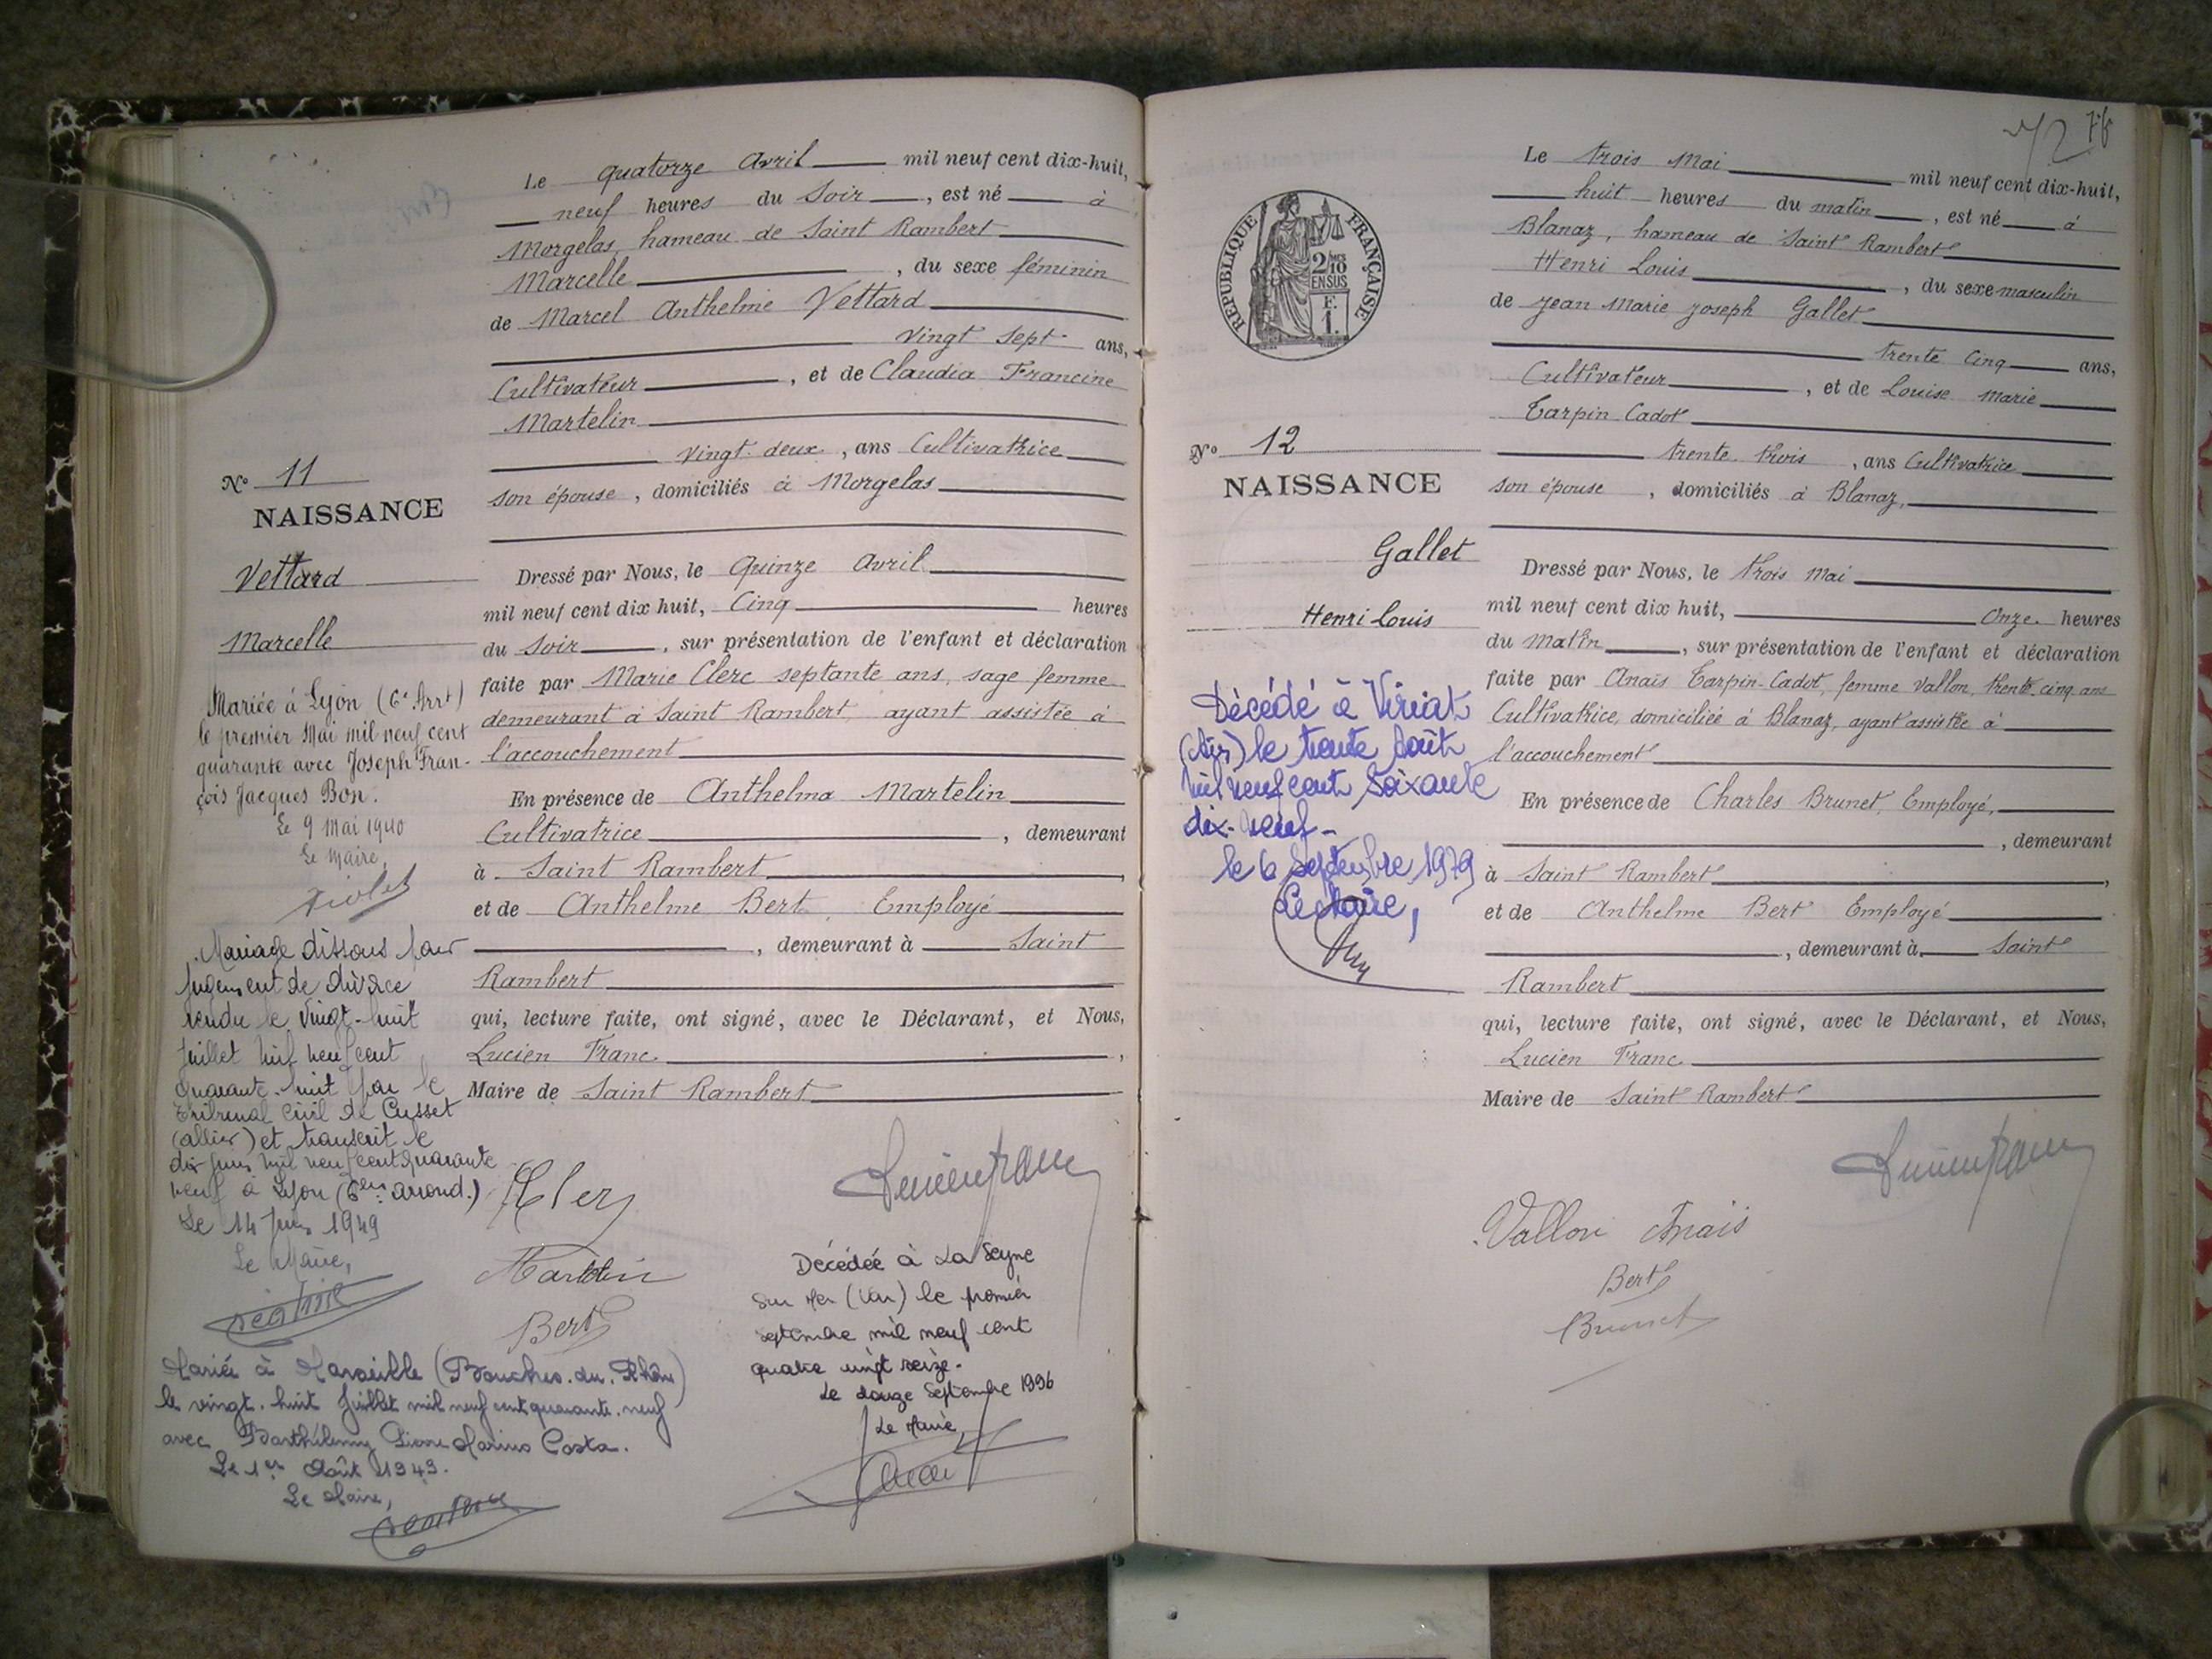 Le quatorze Avril mil neuf cent dix-huit,
neuf heures du Soir, est né à
Morgelas, hameau de Saint Rambert
Marcelle, du sexe féminin
de Marcel Anthelme Vettard
vingt sept ans,
Cultivateur, et de Claudia Francine
Martelin
vingt deux, ans Cultivatrice
son épouse, domiciliés à Morgelas
Nº 11
NAISSANCE
Vettard
Marcelle
Dressé par Nous, le Quinze Avril
mil neuf cent dix huit, Cinq heures
du Soir, sur présentation de l'enfant et déclaration
faite par Marie Clerc septante ans, sage femme
demeurant à Saint Rambert, ayant assistée à
l'accouchement
En présence de Anthelma Martelin
Cultivatrice, demeurant
à Saint Rambert,
et de Anthelme Bert, Employé
, demeurant à Saint
Rambert
qui, lecture faite, ont signé, avec le Déclarant, et Nous,
Lucien Franc,
Maire de Saint Rambert
Mariée à Lyon (6e Arrt)
le premier Mai mil neuf cent
quarante avec Joseph Fran-
çois Jacques Bon.
Le 9 Mai 1940
Le Maire,
Mariage dissous par
Jugement de divorce
rendu le vingt-huit
Juillet mil neuf cent
quarante-huit par le
Tribunal Civil de Cusset
(allier) et transcrit le
dix Juin mil neuf cent quarante
neuf à Lyon (6ème arrond.)
Le 14 Juin 1949
Le Maire,
Mariée à Marseille (Bouches-du-Rhône)
le vingt-huit Juillet mil neuf cent quarante-neuf
avec Barthélemy Pierre Marius Costa.
Le 1er Août 1949.
Le Maire,
Clerc
Martelin
Bert
Lucien Franc
Décédée à La Seyne
sur Mer (Var) le premier
septembre mil neuf cent
quatre vingt seize.
Le douze Septembre 1996
Le Maire
72 76
RÉPUBLIQUE FRANÇAISE
2/10
EN SUS
F.
1.
Le trois Mai mil neuf cent dix-huit,
huit heures du matin, est né à
Blanaz, hameau de Saint Rambert
Henri Louis, du sexe masculin
de Jean Marie Joseph Gallet
trente cinq ans,
Cultivateur, et de Louise Marie
Tarpin Cadot
trente trois, ans Cultivatrice
son épouse, domiciliés à Blanaz,
Nº 12
NAISSANCE
Gallet
Henri Louis
Dressé par Nous, le trois Mai
mil neuf cent dix huit, Onze heures
du Matin, sur présentation de l'enfant et déclaration
faite par Anaïs Tarpin-Cadot, femme Vallon, trente cinq ans
Cultivatrice, domiciliée à Blanaz, ayant assistée à
l'accouchement
En présence de Charles Brunet, Employé,
, demeurant
à Saint Rambert,
et de Anthelme Bert Employé
, demeurant à Saint
Rambert
qui, lecture faite, ont signé, avec le Déclarant, et Nous,
Lucien Franc
Maire de Saint Rambert
Décédé à Viriat
(Ain) le trente Août
mil neuf cent soixante
dix-neuf-
le 6 Septembre 1979
Le Maire,
Lucien Franc
Vallon Anaïs
Bert
Brunet